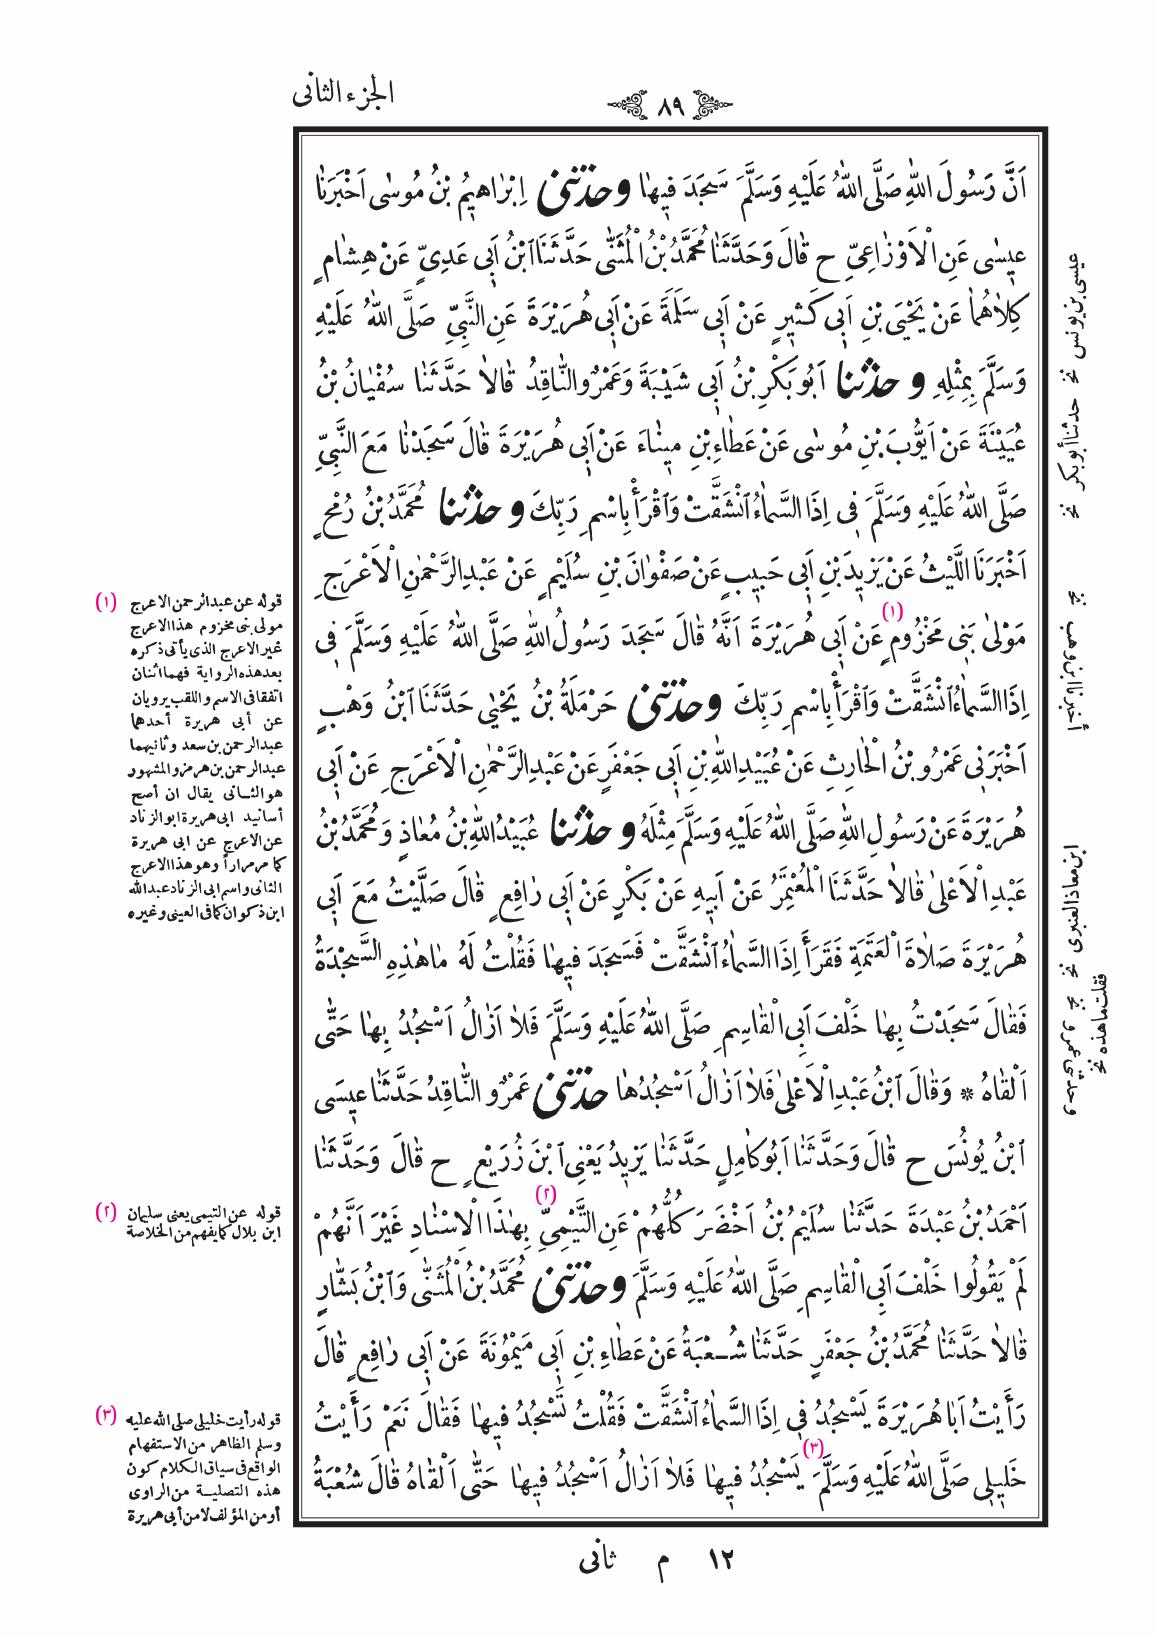 الجزء الثانى
٨٩
اَنَّ رَسُولَ اللّٰهِ صَلَّى اللّٰهُ عَلَيْهِ وَسَلَّمَ سَجَدَ فِيهَا وحدثنى اِبْرَاهِيمُ بْنُ مُوسٰى اَخْبَرَنَا
عِيسٰى عَنِ الْاَوْزَاعِىِّ ح قَالَ وَحَدَّثَنَا مُحَمَّدُ بْنُ الْمُثَنّٰى حَدَّثَنَا ابْنُ اَبِى عَدِىٍّ عَنْ هِشَامٍ
كِلَاهُمَا عَنْ يَحْيَى بْنِ اَبِى كَثِيرٍ عَنْ اَبِى سَلَمَةَ عَنْ اَبِى هُرَيْرَةَ عَنِ النَّبِىِّ صَلَّى اللّٰهُ عَلَيْهِ
وَسَلَّمَ بِمِثْلِهِ و حدثنا اَبُو بَكْرِ بْنُ اَبِى شَيْبَةَ وَعَمْرٌو النَّاقِدُ قَالَا حَدَّثَنَا سُفْيَانُ بْنُ
عُيَيْنَةَ عَنْ اَيُّوبَ بْنِ مُوسٰى عَنْ عَطَاءِ بْنِ مِينَاءَ عَنْ اَبِى هُرَيْرَةَ قَالَ سَجَدْنَا مَعَ النَّبِىِّ
صَلَّى اللّٰهُ عَلَيْهِ وَسَلَّمَ فِى اِذَا السَّمَاءُ انْشَقَّتْ وَاقْرَأْ بِاسْمِ رَبِّكَ و حدثنا مُحَمَّدُ بْنُ رُمْحٍ
اَخْبَرَنَا اللَّيْثُ عَنْ يَزِيدَ بْنِ اَبِى حَبِيبٍ عَنْ صَفْوَانَ بْنِ سُلَيْمٍ عَنْ عَبْدِ الرَّحْمٰنِ الْاَعْرَجِ
مَوْلٰى بَنِى مَخْزُومٍ (١) عَنْ اَبِى هُرَيْرَةَ اَنَّهُ قَالَ سَجَدَ رَسُولُ اللّٰهِ صَلَّى اللّٰهُ عَلَيْهِ وَسَلَّمَ فِى
اِذَا السَّمَاءُ انْشَقَّتْ وَاقْرَأْ بِاسْمِ رَبِّكَ وحدثنى حَرْمَلَةُ بْنُ يَحْيٰى حَدَّثَنَا ابْنُ وَهْبٍ
اَخْبَرَنِى عَمْرُو بْنُ الْحَارِثِ عَنْ عُبَيْدِ اللّٰهِ بْنِ اَبِى جَعْفَرٍ عَنْ عَبْدِ الرَّحْمٰنِ الْاَعْرَجِ عَنْ اَبِى
هُرَيْرَةَ عَنْ رَسُولِ اللّٰهِ صَلَّى اللّٰهُ عَلَيْهِ وَسَلَّمَ مِثْلَهُ و حدثنا عُبَيْدُ اللّٰهِ بْنُ مُعَاذٍ وَمُحَمَّدُ بْنُ
عَبْدِ الْاَعْلٰى قَالَا حَدَّثَنَا الْمُعْتَمِرُ عَنْ اَبِيهِ عَنْ بَكْرٍ عَنْ اَبِى رَافِعٍ قَالَ صَلَّيْتُ مَعَ اَبِى
هُرَيْرَةَ صَلَاةَ الْعَتَمَةِ فَقَرَأَ اِذَا السَّمَاءُ انْشَقَّتْ فَسَجَدَ فِيهَا فَقُلْتُ لَهُ مَا هٰذِهِ السَّجْدَةُ
فَقَالَ سَجَدْتُ بِهَا خَلْفَ اَبِى الْقَاسِمِ صَلَّى اللّٰهُ عَلَيْهِ وَسَلَّمَ فَلَا اَزَالُ اَسْجُدُ بِهَا حَتّٰى
اَلْقَاهُ * وَقَالَ ابْنُ عَبْدِ الْاَعْلٰى فَلَا اَزَالُ اَسْجُدُهَا حدثنى عَمْرٌو النَّاقِدُ حَدَّثَنَا عِيسَى
ابْنُ يُونُسَ ح قَالَ وَحَدَّثَنَا اَبُو كَامِلٍ حَدَّثَنَا يَزِيدُ يَعْنِى ابْنَ زُرَيْعٍ ح قَالَ وَحَدَّثَنَا
اَحْمَدُ بْنُ عَبْدَةَ حَدَّثَنَا سُلَيْمُ بْنُ اَخْضَرَ كُلُّهُمْ عَنِ التَّيْمِىِّ (٢) بِهٰذَا الْاِسْنَادِ غَيْرَ اَنَّهُمْ
لَمْ يَقُولُوا خَلْفَ اَبِى الْقَاسِمِ صَلَّى اللّٰهُ عَلَيْهِ وَسَلَّمَ وحدثنى مُحَمَّدُ بْنُ الْمُثَنّٰى وَابْنُ بَشَّارٍ
قَالَا حَدَّثَنَا مُحَمَّدُ بْنُ جَعْفَرٍ حَدَّثَنَا شُعْبَةُ عَنْ عَطَاءِ بْنِ اَبِى مَيْمُونَةَ عَنْ اَبِى رَافِعٍ قَالَ
رَأَيْتُ اَبَا هُرَيْرَةَ يَسْجُدُ فِى اِذَا السَّمَاءُ انْشَقَّتْ فَقُلْتُ تَسْجُدُ فِيهَا فَقَالَ نَعَمْ رَأَيْتُ
خَلِيلِى صَلَّى اللّٰهُ عَلَيْهِ وَسَلَّمَ (٣) يَسْجُدُ فِيهَا فَلَا اَزَالُ اَسْجُدُ فِيهَا حَتّٰى اَلْقَاهُ قَالَ شُعْبَةُ
عيسى بن يونس نخ
حدثنا أبو بكر نخ
أخبرنا ابن وهب نخ
ابن معاذ العنبرى نخ
فقلت ما هذه نخ
وحدثنى عمرو نخ
(١) قوله عن عبدالرحمن الاعرج
مولى بنى مخزوم هذا الاعرج
غير الاعرج الذى يأتى ذكره
بعد هذه الرواية فهما اثنان
اتفقا فى الاسم واللقب يرويان
عن أبى هريرة أحدهما
عبدالرحمن بن سعد وثانيهما
عبدالرحمن بن هرمز والمشهور
هو الثانى يقال ان أصح
أسانيد ابى هريرة ابوالزناد
عن الاعرج عن ابى هريرة
كما مر مراراً وهو هذا الاعرج
الثانى واسم ابى الزناد عبدالله
ابن ذكوان كما فى العينى وغيره
(٢) قوله عن التيمى يعنى سليمان
ابن بلال كما يفهم من الخلاصة
(٣) قوله رأيت خليلى صلى الله عليه
وسلم الظاهر من الاستفهام
الواقع فى سياق الكلام كون
هذه التصلية من الراوى
أو من المؤلف لا من أبى هريرة
١٢ م ثانى